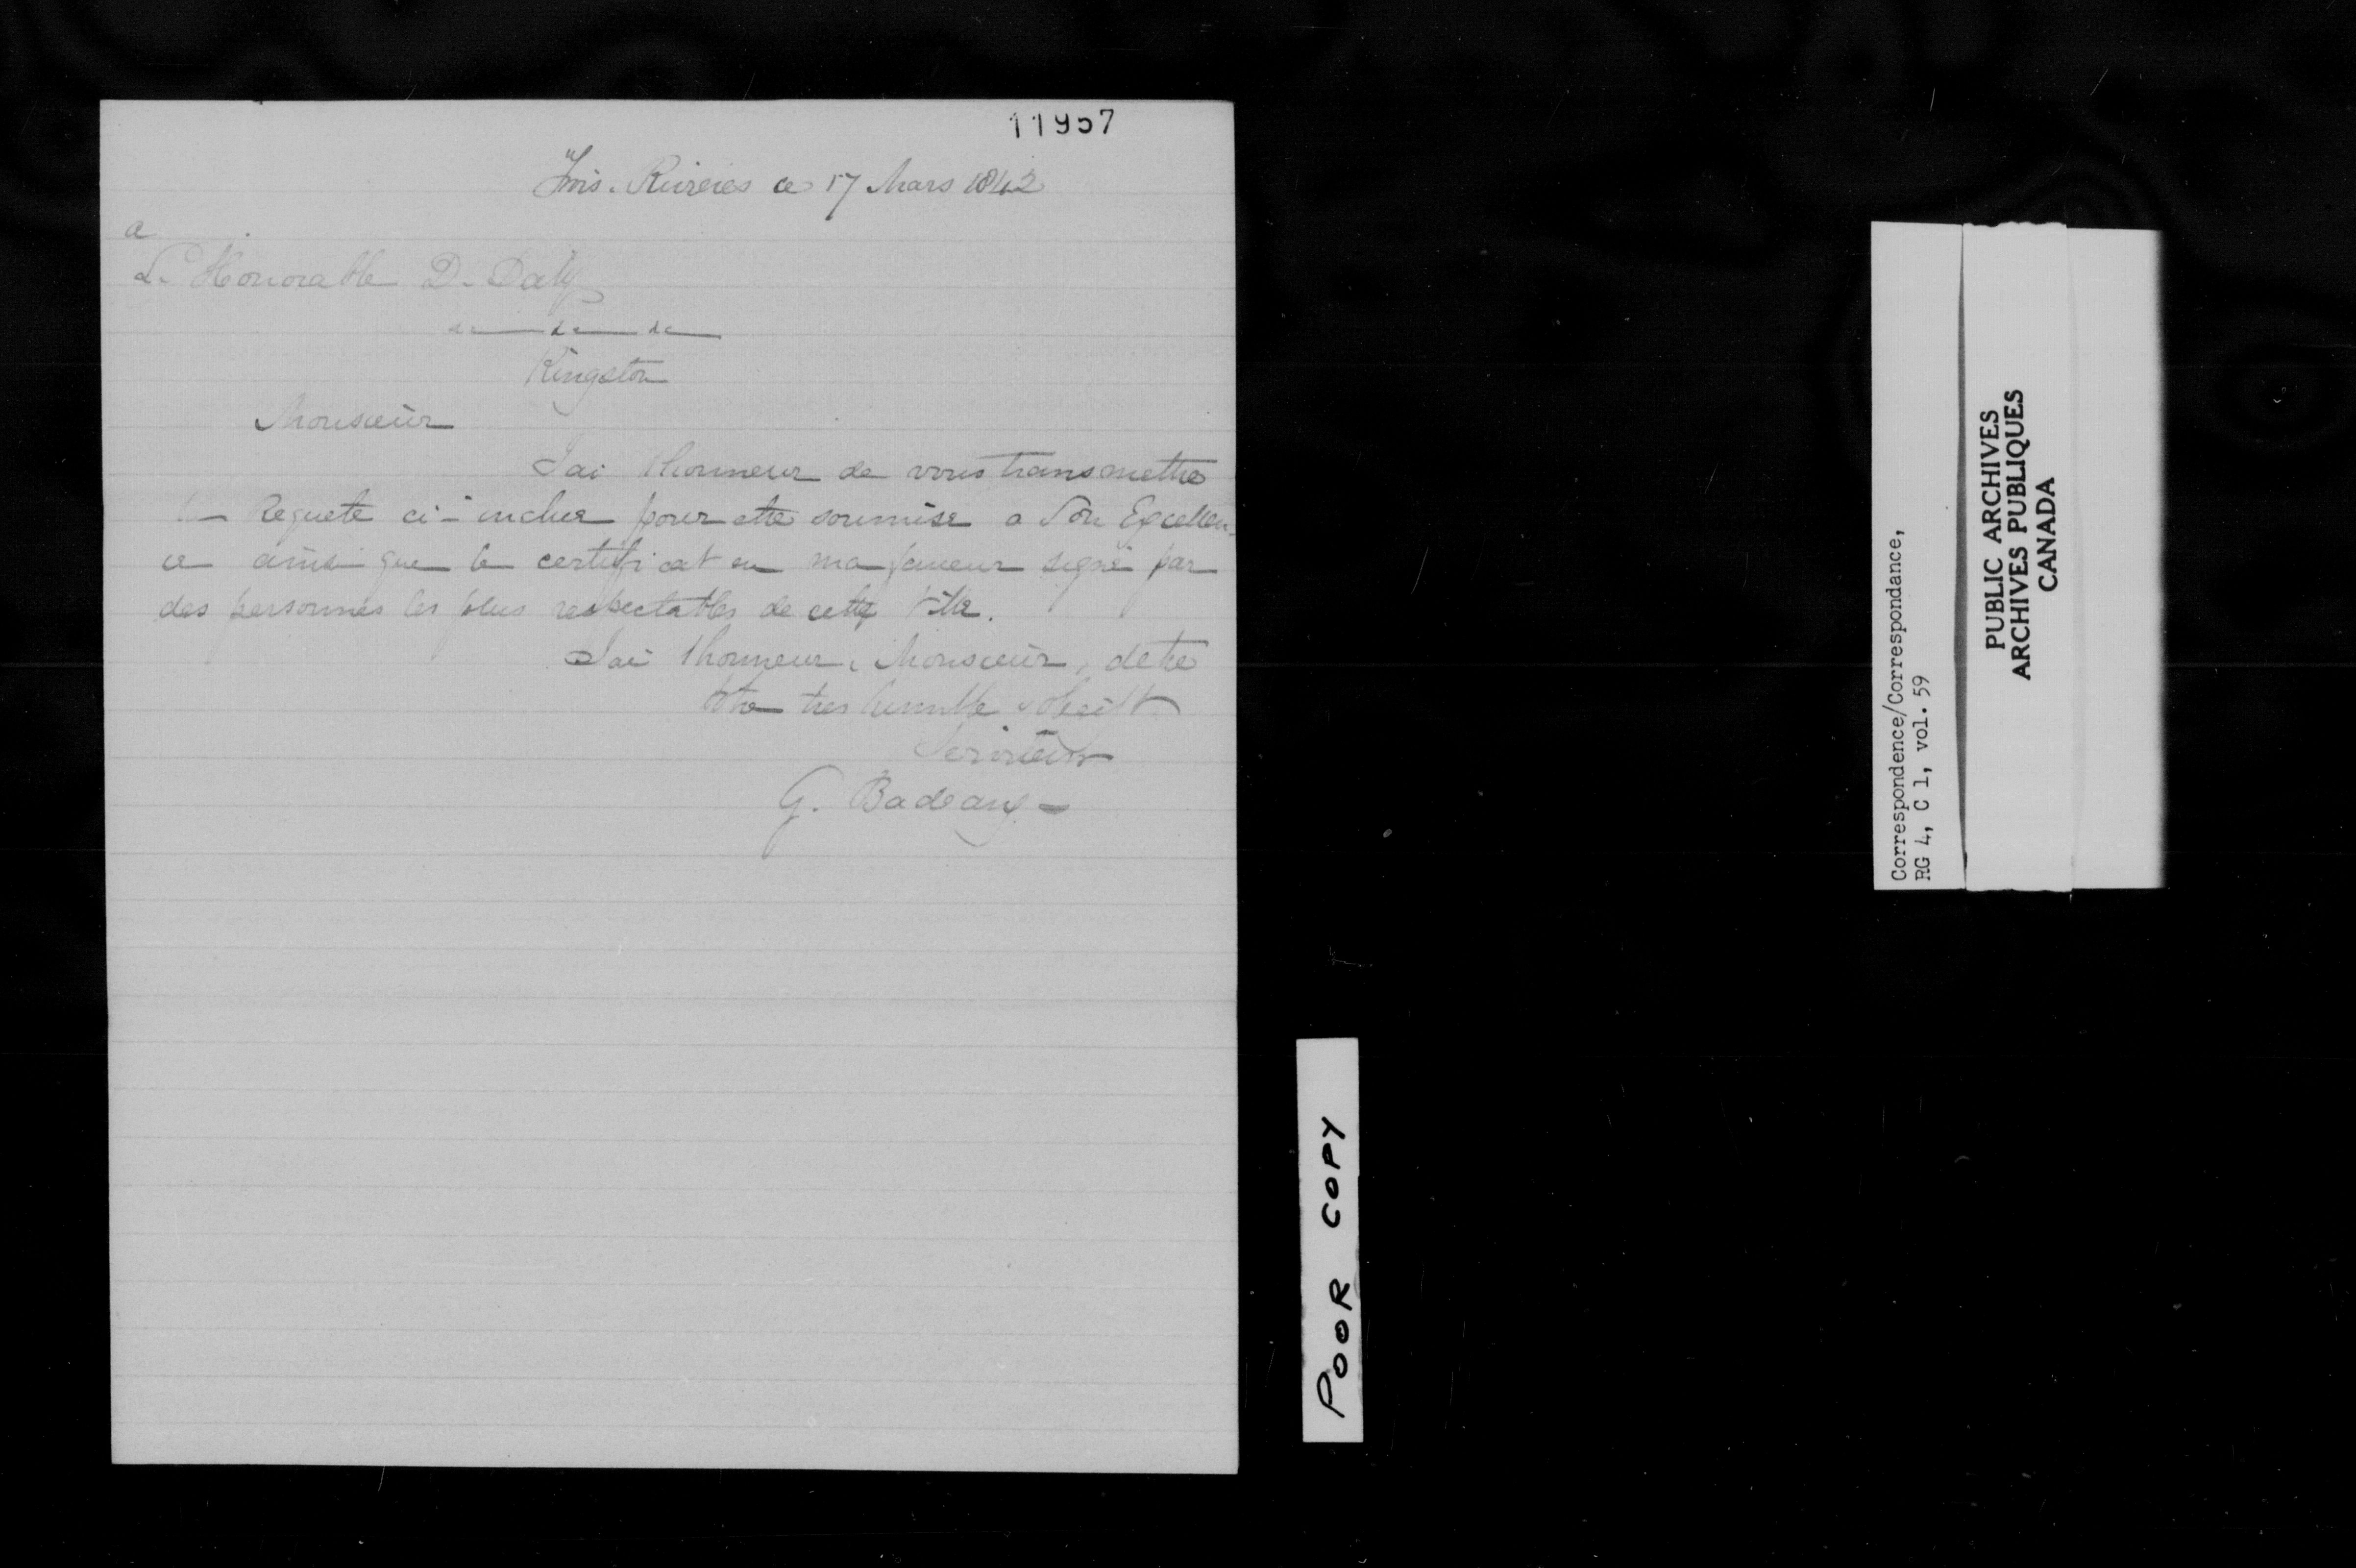 11957
Trois-Rivieres ce 17 Mars 1842
a
L'Honorable D. Daly
&c &c &c
Kingston
Monsieur
Jai lhonneur de vous transmettre
la Requete ci-inclue pour etre soumise a Son Excellen-
ce ainsi que le certificat en ma faveur signé par
des personnes les plus respectables de cette Ville.
Jai lhonneur, Monsieur, detre
Votre tres humble & obeist
Serviteur
G. Badeaux
Correspondence/Correspondance,
RG 4, C 1, vol. 59
PUBLIC ARCHIVES
ARCHIVES PUBLIQUES
CANADA
POOR COPY